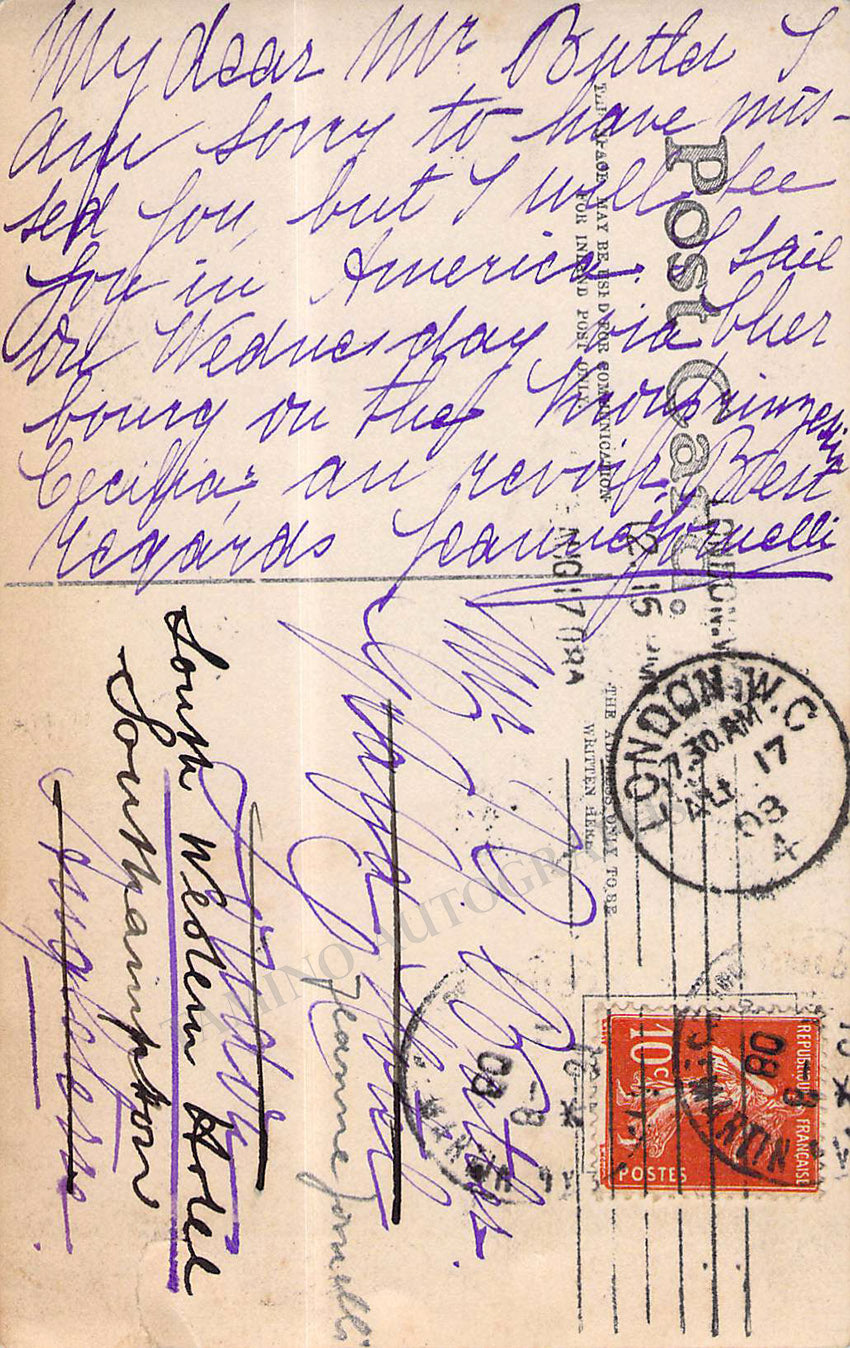 My dear Mr Butler I
am sorry to have mis-
sed you, but I will see
you in America. I sail
on Wednesday via Cher
bourg on the Kronprinzessin
Cecilia; au revoir. Best
regards Jeanne Jomelli
Post Card.
THIS SPACE MAY BE USED FOR COMMUNICATION
FOR INLAND POST ONLY.
THE ADDRESS ONLY TO BE
WRITTEN HERE.
LONDON. W.
12.15 PM
AUG 17 08A
LONDON. W.C
7.30 AM
AU 17
08
A
Mr Butler.
Hotel
London
Angleterre
South Western Hotel
Southampton
Jeanne Jomelli
REPUBLIQUE FRANÇAISE
10c
POSTES
8
08
8
08
TAMINO AUTOGRAPHS